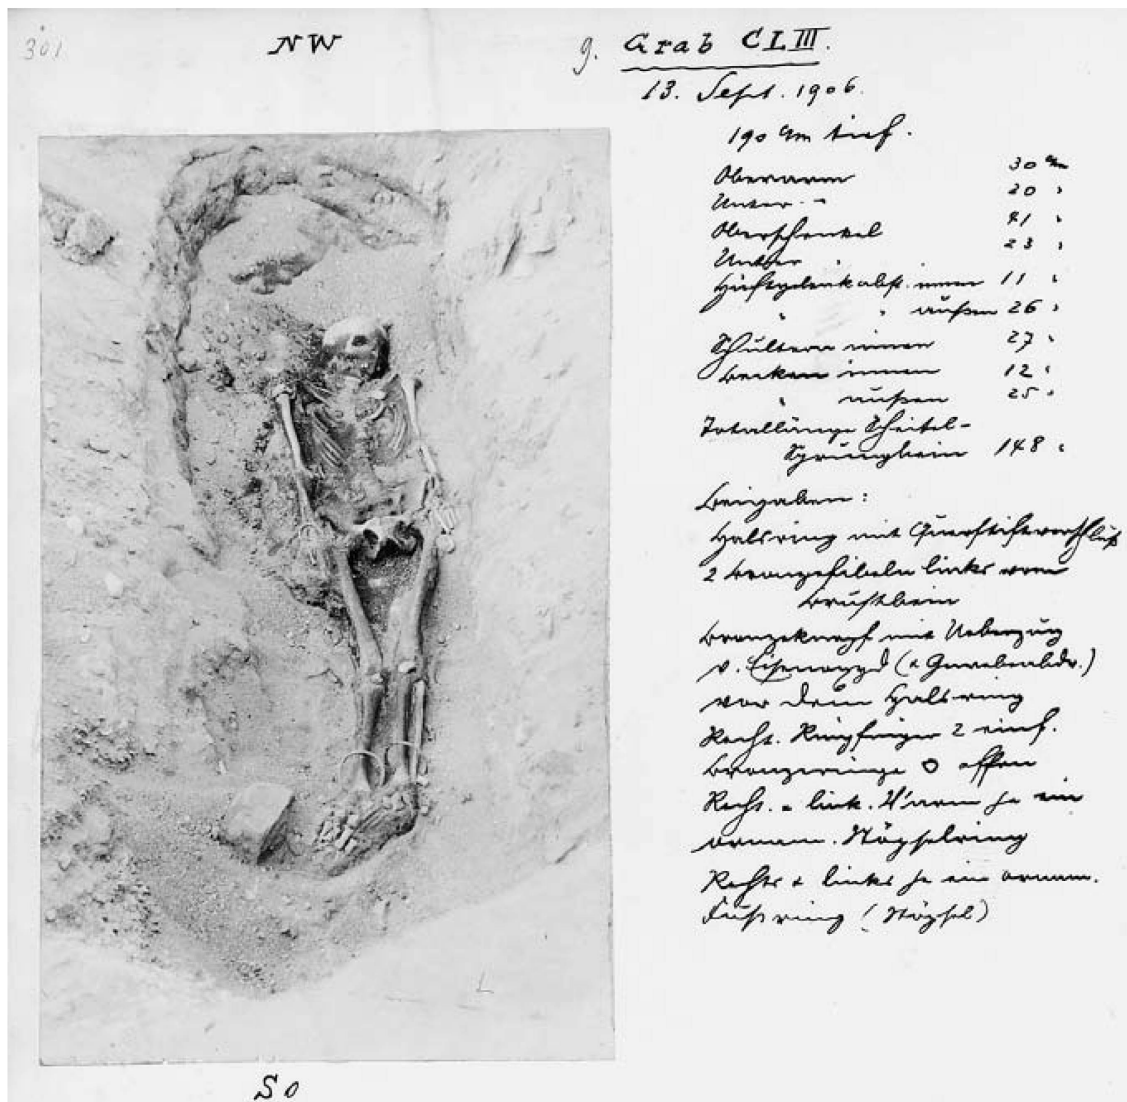 301
NW
9. Grab CLIII.
13. Sept. 1906.
190 cm tief.
Oberarm 30 cm
Unter - " 20 "
Oberschenkel 41 "
Unter " 23 "
Hüftgelenkabst. innen 11 "
" " außen 26 "
Schultern innen 27 "
Becken innen 12 "
" außen 25 "
Totallänge Scheitel-
Sprungbein 148 "
Beigaben:
Halsring mit Querstiftverschluß
2 Bronzefibeln links vom
Brustbein
Bronzeknopf mit Ueberzug
v. Eisenoxyd (& Gewebeabdr.)
vor dem Halsring
Recht. Ringfinger 2 einf.
Bronzeringe O offen
Recht. & link. U'arm je ein
ornam. Stöpselring
Rechts & links je ein ornam.
Fußring (Stöpsel)
L
SO